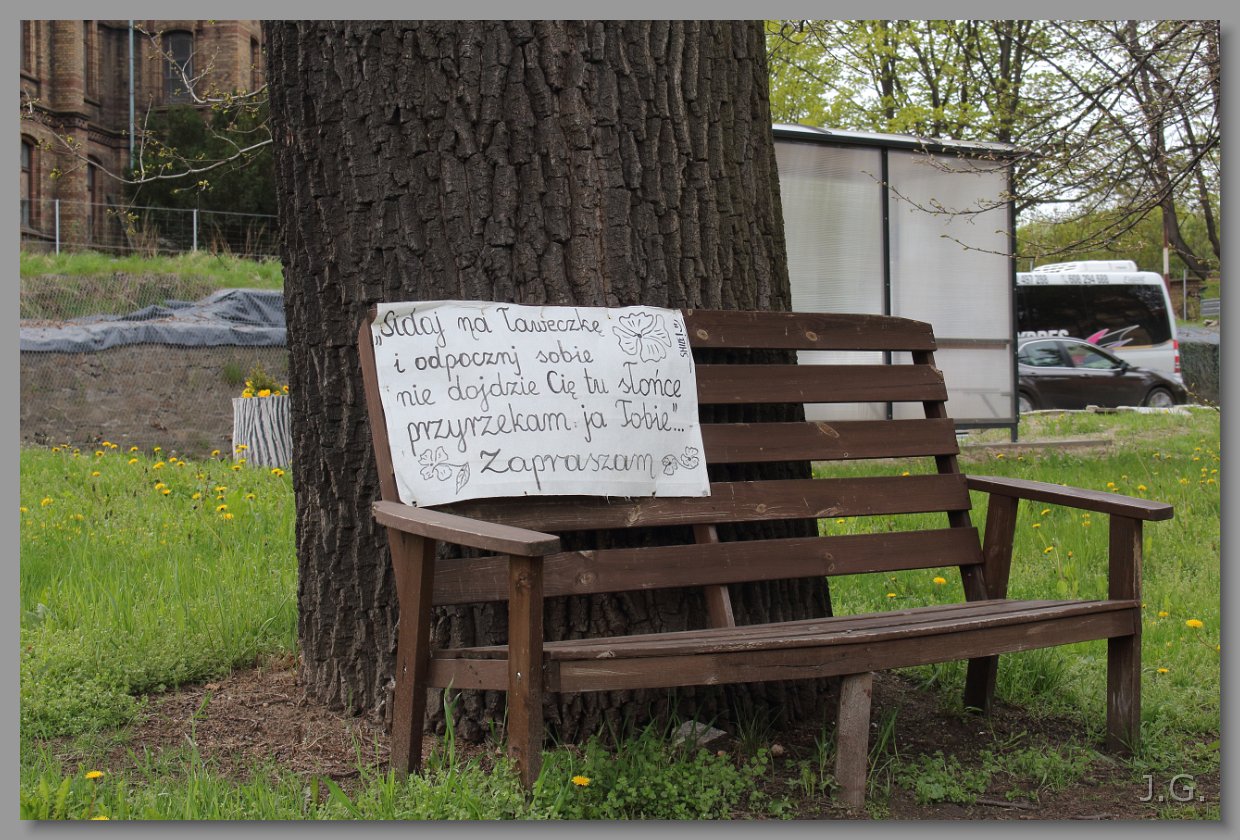 „Sidaj na Ławeczkę
i odpocznj sobie
nie dojdzie Cię tu słońce
przyrzekam ja Tobie"...
Zapraszam
J.G.